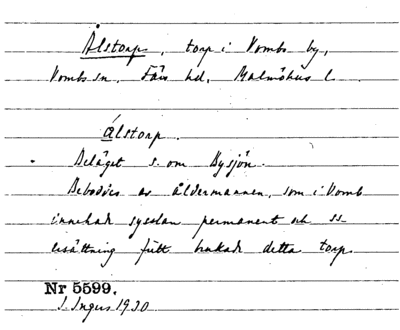 Ålstorp, torp i Vombs by,
Vombs sn. Färs hd. Malmöhus l.
Ålstorp.
Beläget s. om Bysjön.
Beboddes av åldermannen, som i Vomb
innehade sysslan permanent och ss
ersättning fritt brukade detta torp.
Nr 5599.
I. Ingers 1930